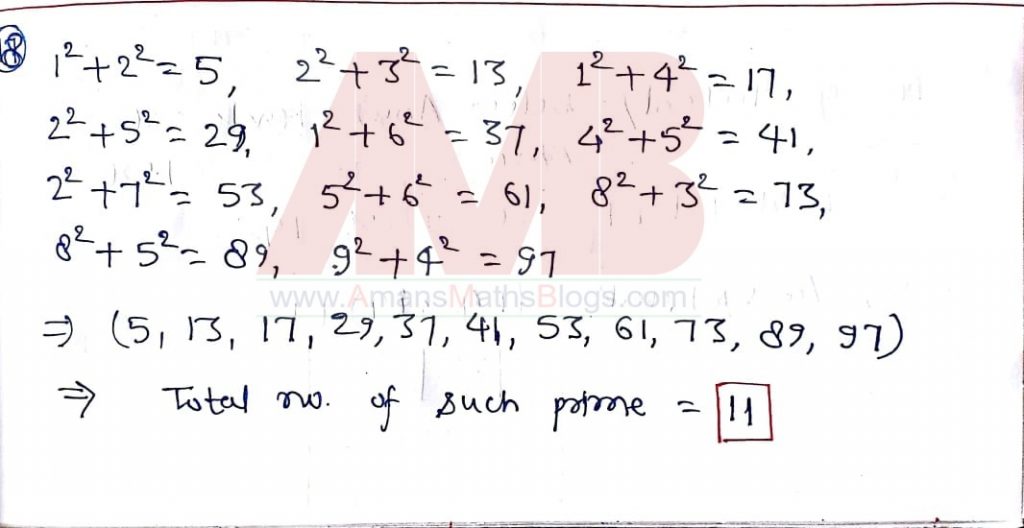 ⑧ 1²+2²=5, 2²+3²=13, 1²+4²=17,
2²+5²=29, 1²+6²=37, 4²+5²=41,
2²+7²=53, 5²+6²=61, 8²+3²=73,
8²+5²=89, 9²+4²=97
AMB
www.AmansMathsBlogs.com
⇒ (5, 13, 17, 29, 37, 41, 53, 61, 73, 89, 97)
⇒ Total no. of such prime = 11